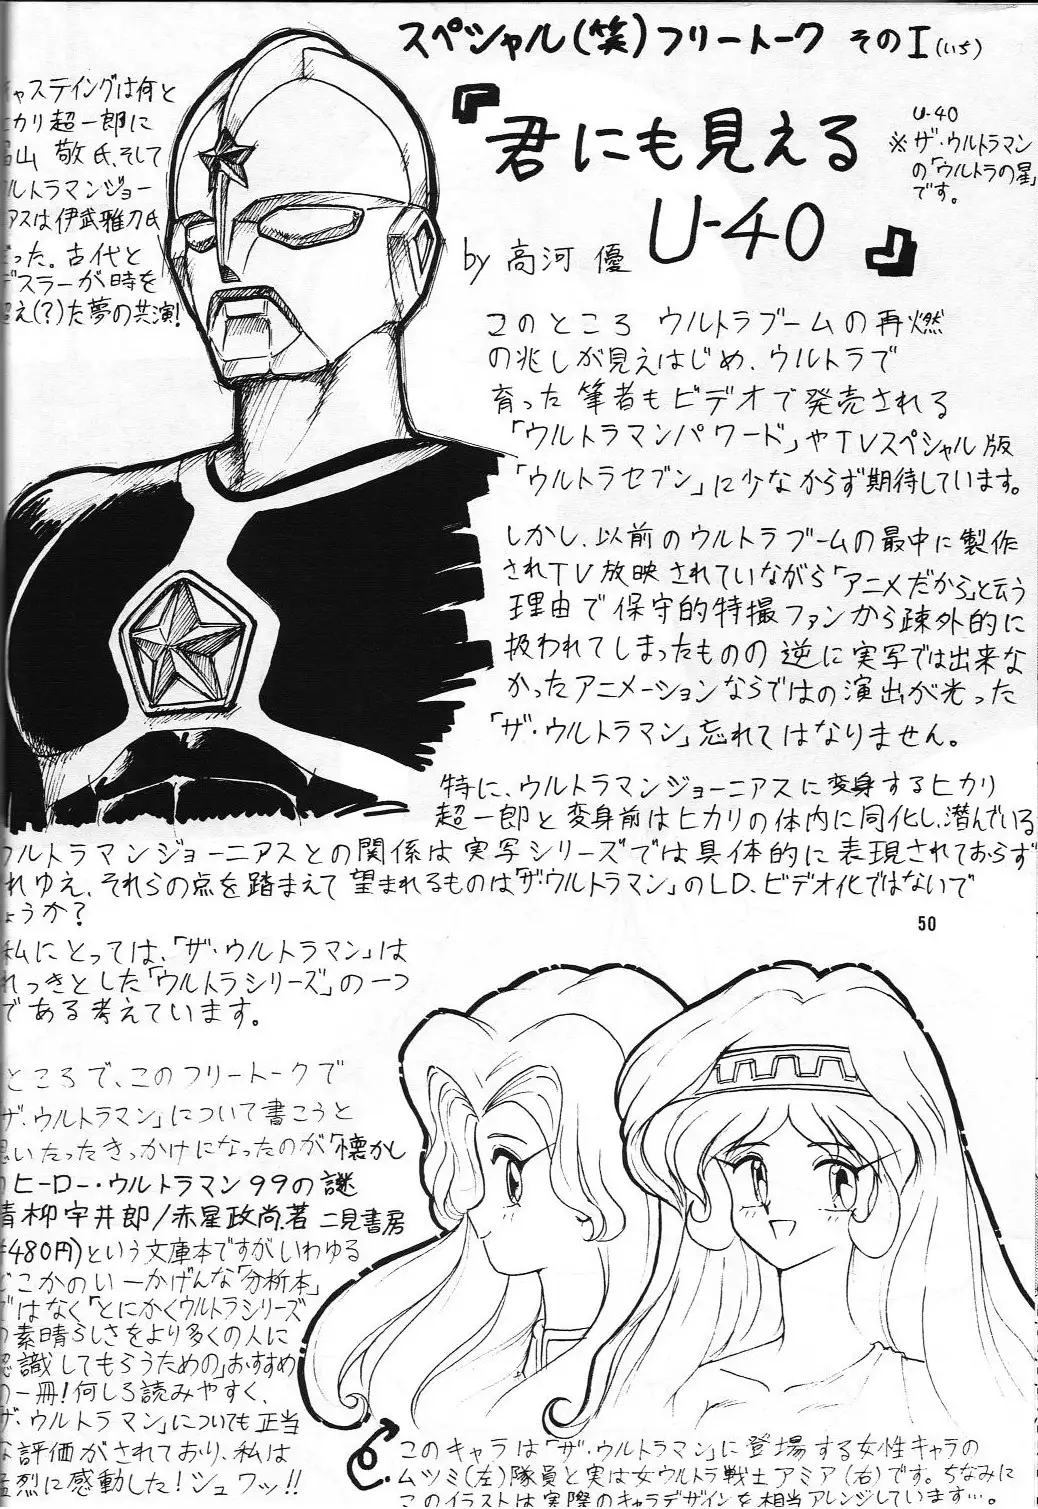 スペシャル(笑)フリートーク そのI(いち)
『君にも見える
U-40 』
by 高河 優
U-40
※ザ・ウルトラマン
の「ウルトラの星」
です。
キャスティングは何と
ヒカリ超一郎に
富山 敬氏、そして
ウルトラマンジョー
ニアスは伊武雅刀氏
だった。古代と
デスラーが時を
超え(?)た夢の共演!
このところ ウルトラブームの再燃
の兆しが見えはじめ、ウルトラで
育った筆者もビデオで発売される
「ウルトラマンパワード」やTVスペシャル版
「ウルトラセブン」に少なからず期待しています。
しかし、以前のウルトラブームの最中に製作
されTV放映されていながら「アニメだから」と云う
理由で保守的特撮ファンから疎外的に
扱われてしまったものの逆に実写では出来な
かったアニメーションならではの演出が光った
「ザ・ウルトラマン」忘れてはなりません。
特に、ウルトラマンジョーニアスに変身するヒカリ
超一郎と変身前はヒカリの体内に同化し、潜んでいる
ウルトラマンジョーニアスとの関係は実写シリーズでは具体的に表現されておらず
れゆえ、それらの点を踏まえて望まれるものは「ザ・ウルトラマン」のLD、ビデオ化ではないで
ょうか?
50
私にとっては、「ザ・ウルトラマン」は
れっきとした「ウルトラシリーズ」の一つ
である考えています。
ところで、このフリートークで
ザ・ウルトラマン」について書こうと
思いたったきっかけになったのが「懐かし
のヒーロー・ウルトラマン99の謎
青柳宇井郎/赤星政尚著 二見書房
¥480円)という文庫本ですがいわゆる
どこかのいーかげんな「分析本」
ではなく「とにかくウルトラシリーズ
の素晴らしさをより多くの人に
認識してもらうための」おすすめ
の一冊!何しろ読みやすく、
ザ・ウルトラマン」についても正当
な評価がされており、私は
猛烈に感動した!シュワッ!!
このキャラは「ザ・ウルトラマン」に登場する女性キャラの
ムツミ(左)隊員と実は女ウルトラ戦士アミア(右)です。ちなみに
このイラストは実際のキャラデザインを相当アレンジしています…。